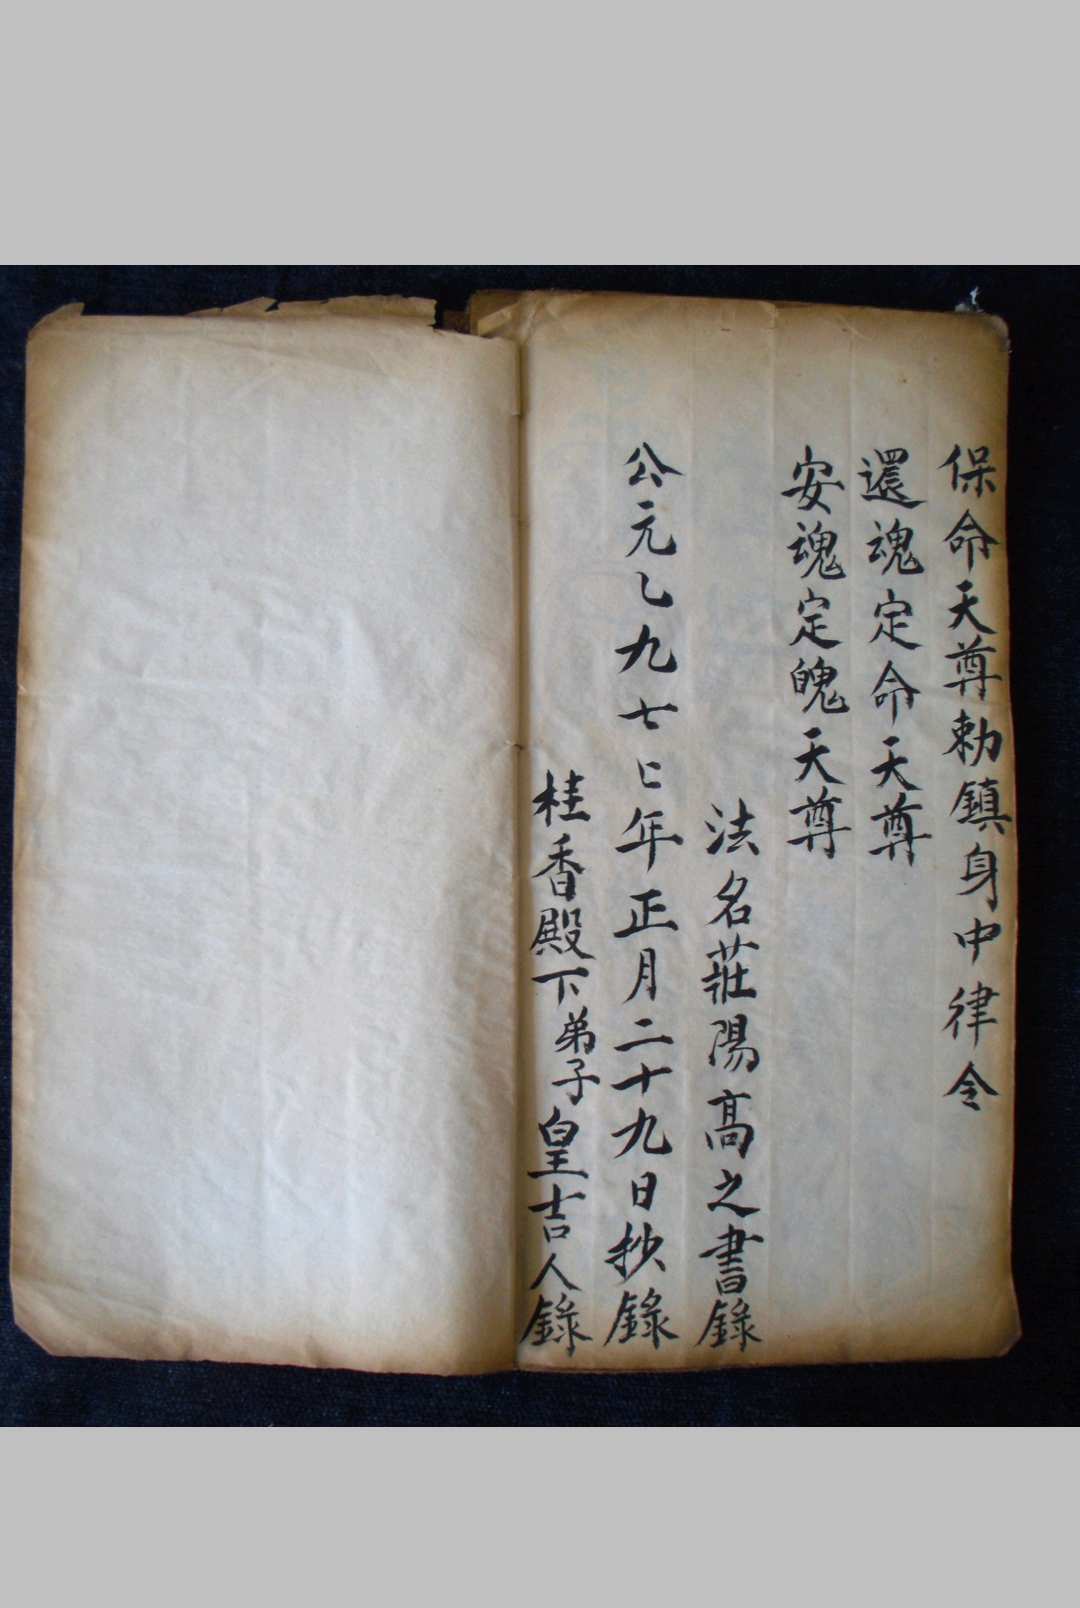 保命天尊勅鎮身中律令
還魂定命天尊
安魂定魄天尊
法名莊陽高之書錄
公元乙九七七年正月二十九日抄錄
桂香殿下弟子皇吉人錄